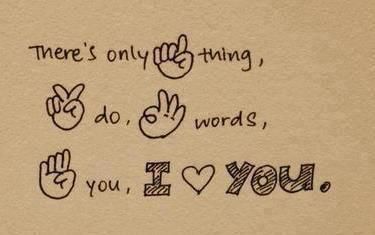 There's only thing,
do, words,
you, I ♡ YOU.